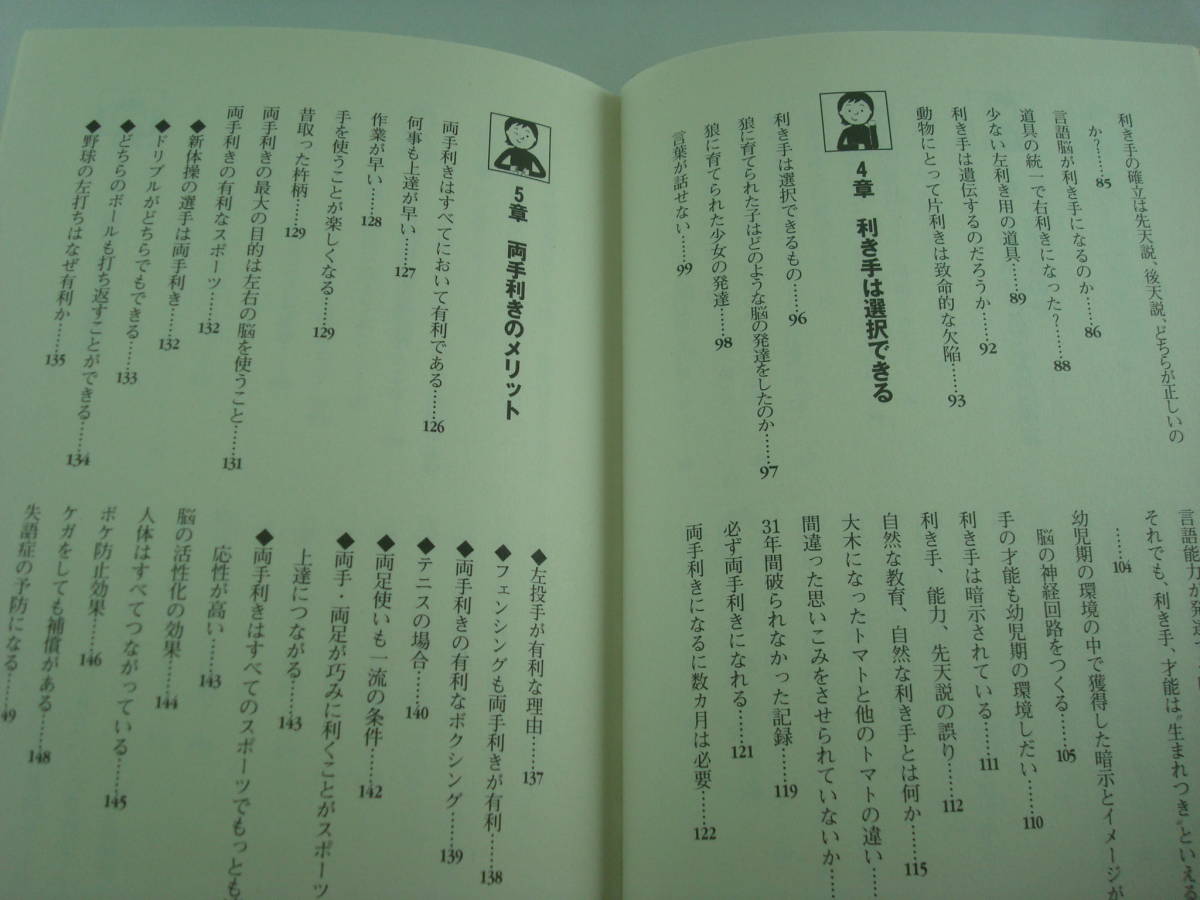 利き手の確立は先天説、後天説、どちらが正しいの
か?……85
言語脳が利き手になるのか……86
道具の統一で右利きになった?……88
少ない左利き用の道具……89
利き手は遺伝するのだろうか……92
動物にとって片利きは致命的な欠陥……93
4章 利き手は選択できる
利き手は選択できるもの……96
狼に育てられた子はどのような脳の発達をしたのか……97
狼に育てられた少女の発達……98
言葉が話せない……99
言語能力が発達
それでも、利き手、才能は〝生まれつき〟といえる
……104
幼児期の環境の中で獲得した暗示とイメージが
脳の神経回路をつくる……105
手の才能も幼児期の環境しだい……110
利き手は暗示されている……111
利き手、能力、先天説の誤り……112
自然な教育、自然な利き手とは何か……115
大木になったトマトと他のトマトの違い……
間違った思いこみをさせられていないか……
31年間破られなかった記録……119
必ず両手利きになれる……121
両手利きになるに数カ月は必要……122
5章 両手利きのメリット
両手利きはすべてにおいて有利である……126
何事も上達が早い……127
作業が早い……128
手を使うことが楽しくなる……129
昔取った杵柄……129
両手利きの最大の目的は左右の脳を使うこと……131
両手利きの有利なスポーツ……132
◆新体操の選手は両手利き……132
◆ドリブルがどちらでもできる……133
◆どちらのボールも打ち返すことができる……134
◆野球の左打ちはなぜ有利か……135
◆左投手が有利な理由……137
◆フェンシングも両手利きが有利……138
◆両手利きの有利なボクシング……139
◆テニスの場合……140
◆両足使いも一流の条件……142
◆両手・両足が巧みに利くことがスポーツ
上達につながる……143
◆両手利きはすべてのスポーツでもっとも
応性が高い……143
脳の活性化の効果……144
人体はすべてつながっている……145
ボケ防止効果……146
ケガをしても補償がある……148
失語症の予防になる……149